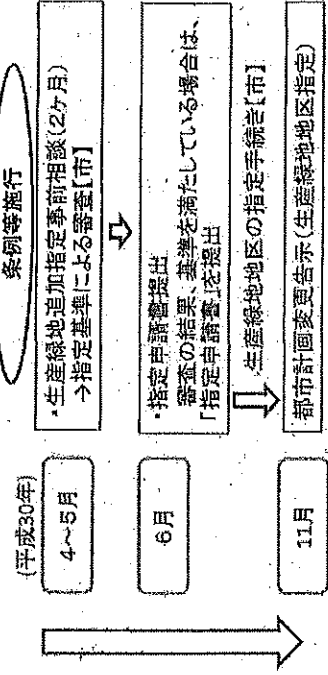 条例等施行
(平成30年)
4~5月
・生産緑地追加指定事前相談(2ヶ月)
→指定基準による審査【市】
6月
・指定申請書提出
審査の結果、基準を満たしている場合は、
「指定申請書」を提出
生産緑地地区の指定手続き【市】
11月
都市計画変更告示(生産緑地地区指定)